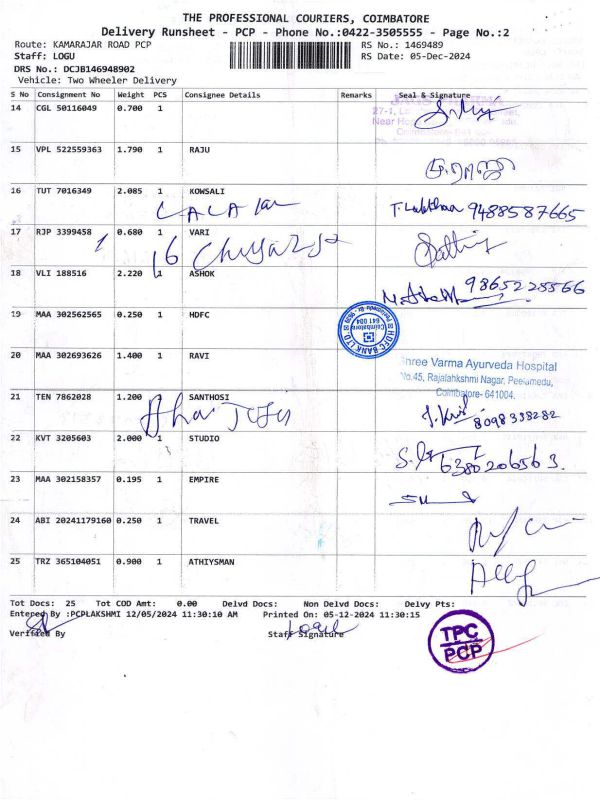 THE PROFESSIONAL COURIERS, COIMBATORE
Delivery Runsheet - PCP - Phone No.:0422-3505555 - Page No.:2
Route: KAMARAJAR ROAD PCP RS No.: 1469489
Staff: LOGU RS Date: 05-Dec-2024
DRS No.: DCJB146948902
Vehicle: Two Wheeler Delivery
S No Consignment No Weight PCS Consignee Details Remarks Seal & Signature
14 CGL 50116049 0.700 1
15 VPL 522559363 1.790 1 RAJU
16 TUT 7016349 2.085 1 KOWSALI
9488587665
17 RJP 3399458 0.680 1 VARI
16
18 VLI 188516 2.220 1 ASHOK 9865225566
19 MAA 302562565 0.250 1 HDFC
HDFC BANK LTD. Coimbatore 641 004
20 MAA 302693626 1.400 1 RAVI
Shree Varma Ayurveda Hospital
No.45, Rajalahkshmi Nagar, Peelamedu,
Coimbatore- 641004.
21 TEN 7862028 1.200 SANTHOSI
8098338282
22 KVT 3205603 2.000 1 STUDIO
6380206563.
23 MAA 302158357 0.195 1 EMPIRE
24 ABI 20241179160 0.250 1 TRAVEL
25 TRZ 365104051 0.900 1 ATHIYSMAN
Tot Docs: 25 Tot COD Amt: 0.00 Delvd Docs: Non Delvd Docs: Delvy Pts:
Entered By :PCPLAKSHMI 12/05/2024 11:30:10 AM Printed On: 05-12-2024 11:30:15
Verified By Staff Signature
Logu
TPC
PCP